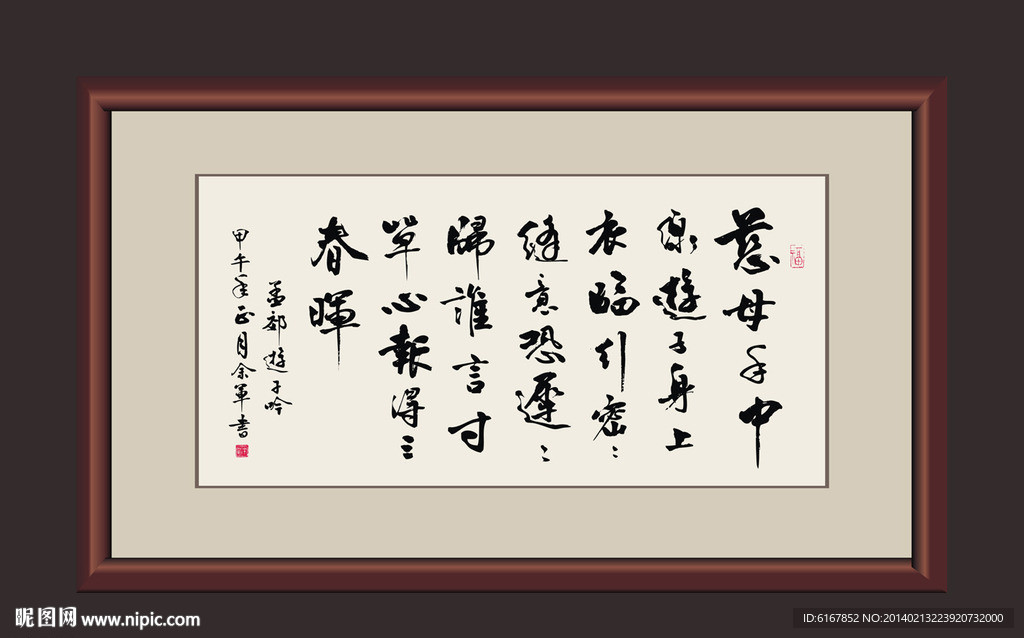 福
慈母手中
線遊子身上
衣臨行密〻
縫意恐遲〻
歸誰言寸
草心報得三
春暉
孟郊遊子吟
甲午年正月余軍書
昵图网 www.nipic.com
ID:6167852 NO:20140213223920732000